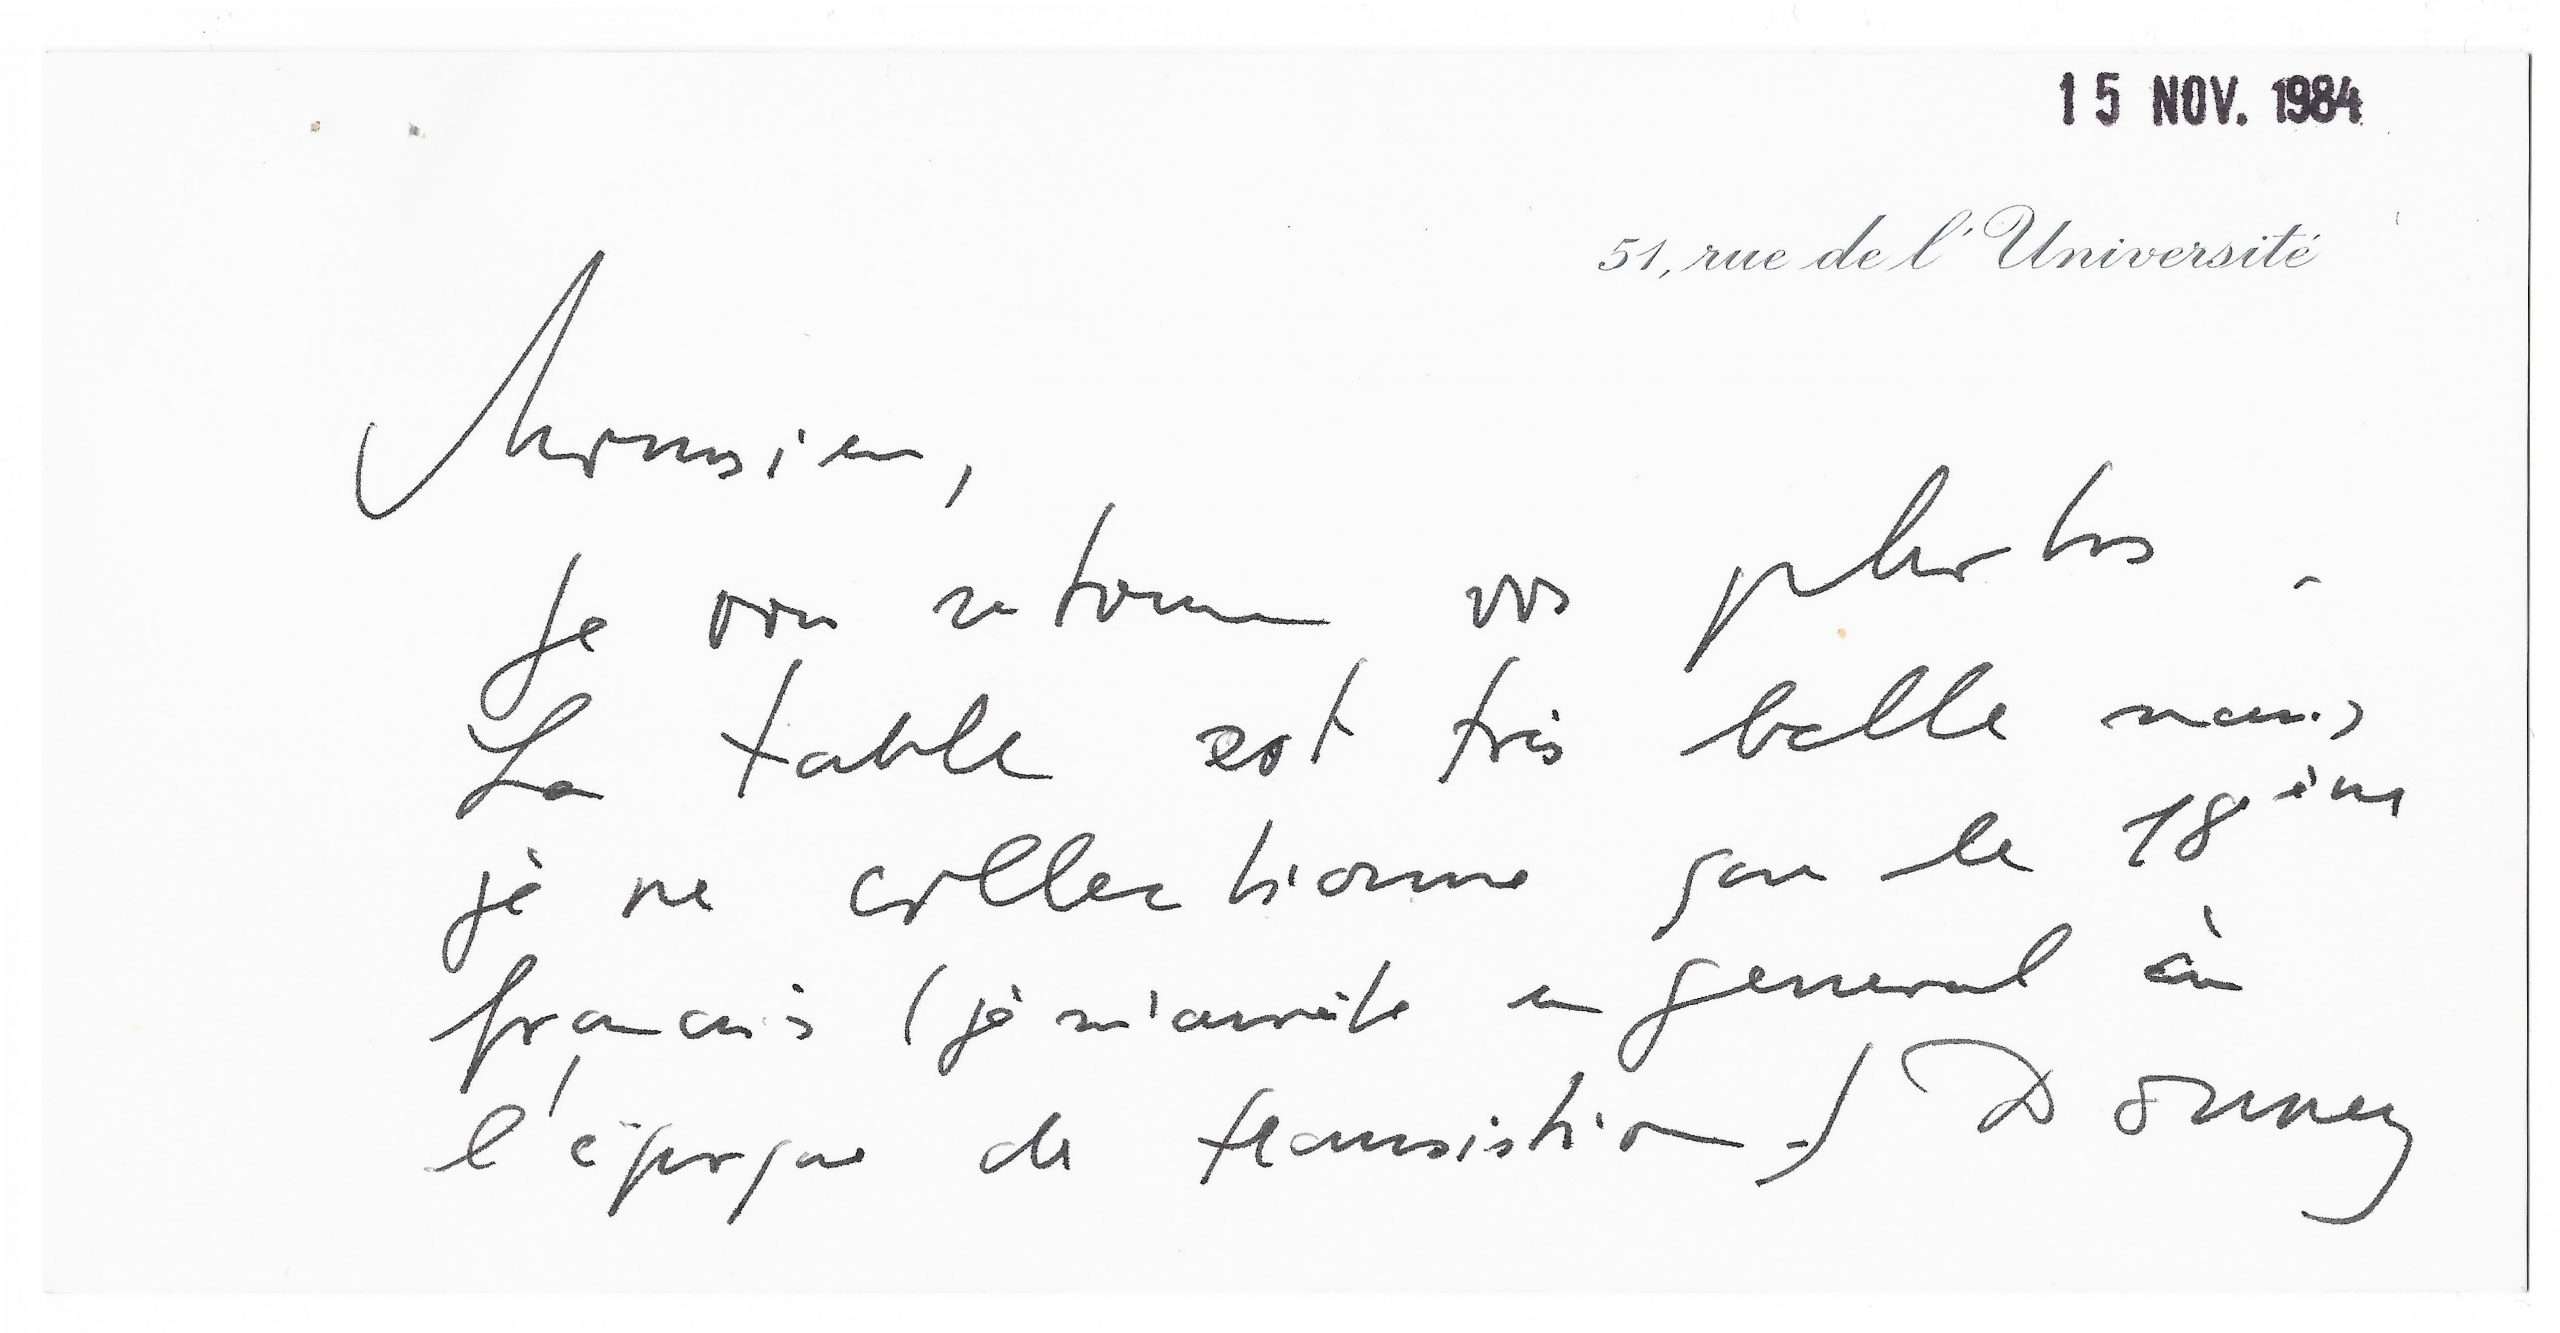 15 NOV. 1984
51, rue de l'Université
Monsieur,
Je vous retourne vos photos.
La table est très belle mais
je ne collectionne que le 18ème
français (je m'arrête en général à
l'époque de transistion.) Donney